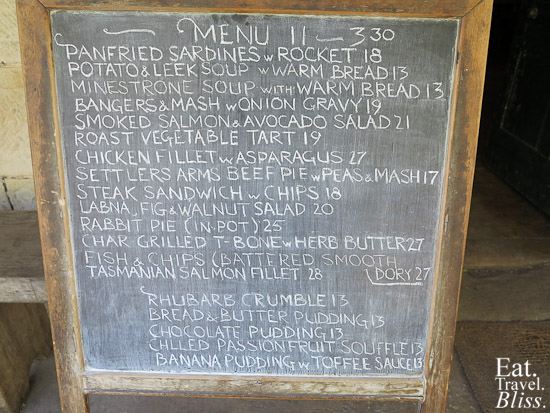 MENU 11 - 3 30
PANFRIED SARDINES w ROCKET 18
POTATO & LEEK SOUP w WARM BREAD 13
MINESTRONE SOUP WITH WARM BREAD 13
BANGERS & MASH w ONION GRAVY 19
SMOKED SALMON & AVOCADO SALAD 21
ROAST VEGETABLE TART 19
CHICKEN FILLET w ASPARAGUS 27
SETTLERS ARMS BEEF PIE w PEAS & MASH 17
STEAK SANDWICH w CHIPS 18
LABNA, FIG & WALNUT SALAD 20
RABBIT PIE (IN-POT) 25
CHAR GRILLED T-BONE w HERB BUTTER 27
FISH & CHIPS (BATTERED SMOOTH
DORY 27
TASMANIAN SALMON FILLET 28
RHUBARB CRUMBLE 13
BREAD & BUTTER PUDDING 13
CHOCOLATE PUDDING 13
CHILLED PASSIONFRUIT SOUFFLE 13
BANANA PUDDING w TOFFEE SAUCE 13
Eat.
Travel.
Bliss.